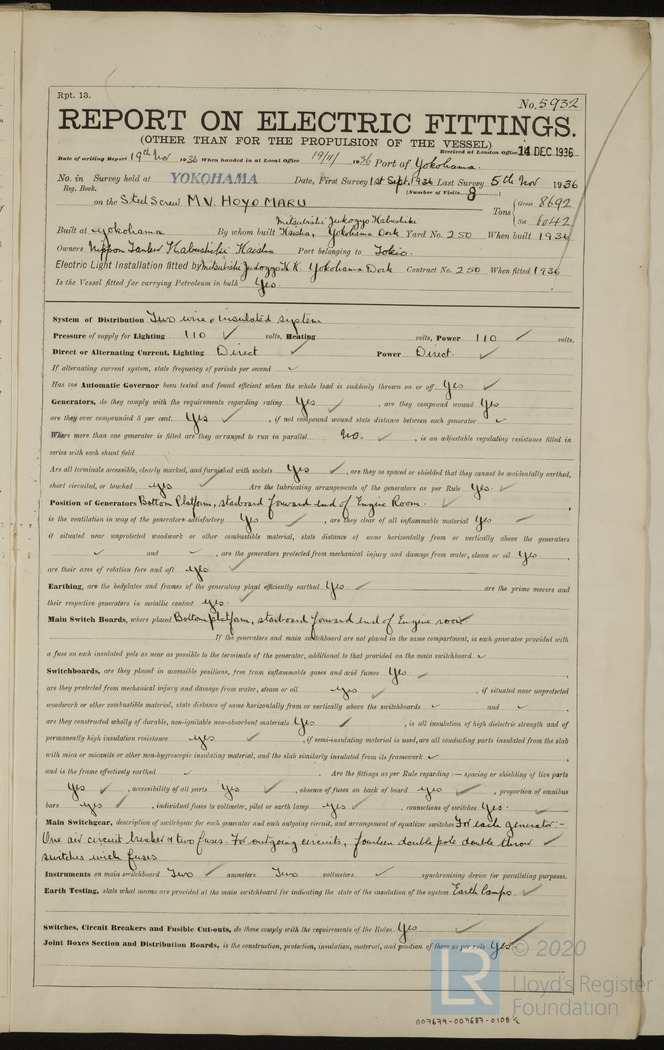 Rpt. 13.
No. 5932
REPORT ON ELECTRIC FITTINGS.
(OTHER THAN FOR THE PROPULSION OF THE VESSEL)
Received at London Office 14 DEC 1936
Date of writing Report 19th Nov 1936 When handed in at Local Office 19/11/ 1936 Port of Yokohama.
No. in Survey held at YOKOHAMA Date, First Survey 1st Sept, 1936 Last Survey 5th Nov 1936
Reg. Book. (Number of Visits 8
on the Steel Screw M.V. HOYO MARU Tons { Gross 8692 Net 6042
Built at Yokohama By whom built Mitsubishi Jukogyo Kabushiki Kaisha, Yokohama Dock Yard No. 250 When built 1936
Owners Nippon Tanker Kabushiki Kaisha Port belonging to Tokio.
Electric Light Installation fitted by Mitsubishi Jukogyo K.K. Yokohama Dock Contract No. 250 When fitted 1936
Is the Vessel fitted for carrying Petroleum in bulk Yes
System of Distribution Two wire insulated system
Pressure of supply for Lighting 110 ✓ volts, Heating volts, Power 110 ✓ volts.
Direct or Alternating Current, Lighting Direct ✓ Power Direct. ✓
If alternating current system, state frequency of periods per second ✓
Has the Automatic Governor been tested and found efficient when the whole load is suddenly thrown on or off Yes ✓
Generators, do they comply with the requirements regarding rating Yes ✓ , are they compound wound Yes
are they over compounded 5 per cent. Yes ✓ , if not compound wound state distance between each generator ✓
Where more than one generator is fitted are they arranged to run in parallel no. ✓ , is an adjustable regulating resistance fitted in
series with each shunt field
Are all terminals accessible, clearly marked, and furnished with sockets Yes ✓ , are they so spaced or shielded that they cannot be accidentally earthed,
short circuited, or touched yes ✓ Are the lubricating arrangements of the generators as per Rule Yes. ✓
Position of Generators Bottom Platform, starboard forward end of Engine Room. ✓
is the ventilation in way of the generators satisfactory Yes ✓ , are they clear of all inflammable material Yes ✓
if situated near unprotected woodwork or other combustible material, state distance of same horizontally from or vertically above the generators
✓ and ✓ , are the generators protected from mechanical injury and damage from water, steam or oil Yes. ,
are their axes of rotation fore and aft yes ✓
Earthing, are the bedplates and frames of the generating plant efficiently earthed Yes. ✓ are the prime movers and
their respective generators in metallic contact yes. ✓
Main Switch Boards, where placed Bottom platform, starboard forward end of Engine room ✓
If the generators and main switchboard are not placed in the same compartment, is each generator provided with
a fuse on each insulated pole as near as possible to the terminals of the generator, additional to that provided on the main switchboard ✓
Switchboards, are they placed in accessible positions, free from inflammable gases and acid fumes Yes ✓ ,
are they protected from mechanical injury and damage from water, steam or oil yes ✓ , if situated near unprotected
woodwork or other combustible material, state distance of same horizontally from or vertically above the switchboards ✓ and ✓ ,
are they constructed wholly of durable, non-ignitable non-absorbent materials Yes ✓ , is all insulation of high dielectric strength and of
permanently high insulation resistance yes ✓ , if semi-insulating material is used, are all conducting parts insulated from the slab
with mica or micanite or other non-hygroscopic insulating material, and the slab similarly insulated from its framework ✓ ,
and is the frame effectively earthed ✓ . Are the fittings as per Rule regarding :— spacing or shielding of live parts
Yes ✓ , accessibility of all parts Yes ✓ , absence of fuses on back of board yes ✓ , proportion of omnibus
bars yes ✓ , individual fuses to voltmeter, pilot or earth lamp yes ✓ , connections of switches Yes. ✓
Main Switchgear, description of switchgear for each generator and each outgoing circuit, and arrangement of equalizer switches For each generator:-
One air circuit breaker & two fuses. For outgoing circuits, fourteen double pole double throw ✓
switches with fuses
Instruments on main switchboard Two ✓ ammeters Two voltmeters ✓ synchronising device for paralleling purposes.
Earth Testing, state what means are provided at the main switchboard for indicating the state of the insulation of the system Earth lamps. ✓
Switches, Circuit Breakers and Fusible Cut-outs, do these comply with the requirements of the Rules Yes ✓
Joint Boxes Section and Distribution Boards, is the construction, protection, insulation, material, and position of these as per rule Yes ✓
© 2020
LR
Lloyd's Register
Foundation
007679-007687-0108 ½